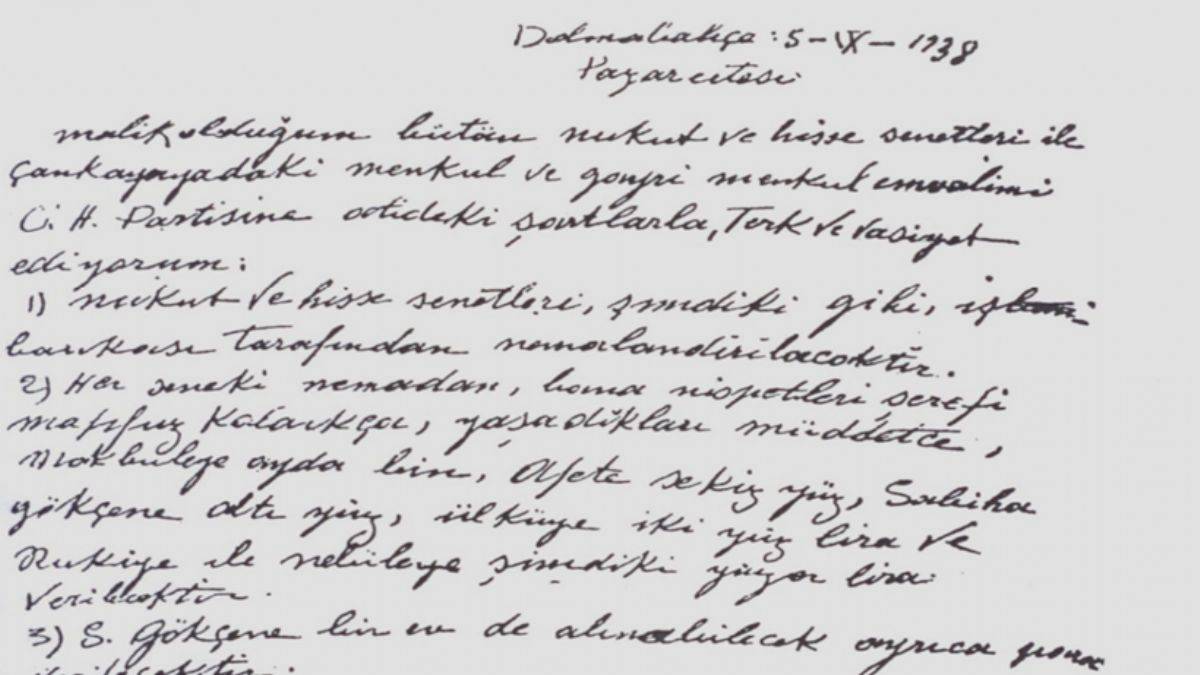 Dolmabahçe : 5 - IX - 1938
Pazarertesi
malik olduğum bütün nukut ve hisse senetleri ile
Çankayayadaki menkul ve gayri menkul emvalimi
C. H. Partisine atideki şartlarla, Terk ve vasiyet
ediyorum :
1) nukut ve hisse senetleri, şimdiki gibi, iş
bankası tarafından nemalandırılacaktır.
2) Her seneki nemadan, bana nispetleri şerefi
mahfuz kaldıkça, yaşadıkları müddetce,
Makbuleye ayda bin, Afete sekiz yüz, Sabiha
gökçene altı yüz, ülküye iki yüz lira ve
Rukiye ile nebileye şimdiki yüzer lira
verilecektir.
3) S. Gökçene bir ev de alınabilecek ayrıca para
verilecektir.